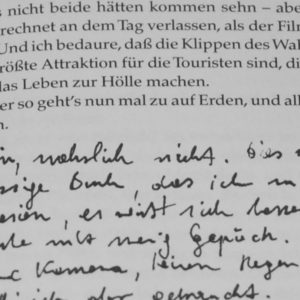 s nicht beide hätten kommen sehn – abe
rechnet an dem Tag verlassen, als der Film
Und ich bedaure, daß die Klippen des Wal
rößte Attraktion für die Touristen sind, di
das Leben zur Hölle machen.
er so geht's nun mal zu auf Erden, und all
n.
nicht. Dies
Buch, das ich
es sich
mit wenig Gepäck.
Kamera, keinen Regen
ich aber gebraucht.